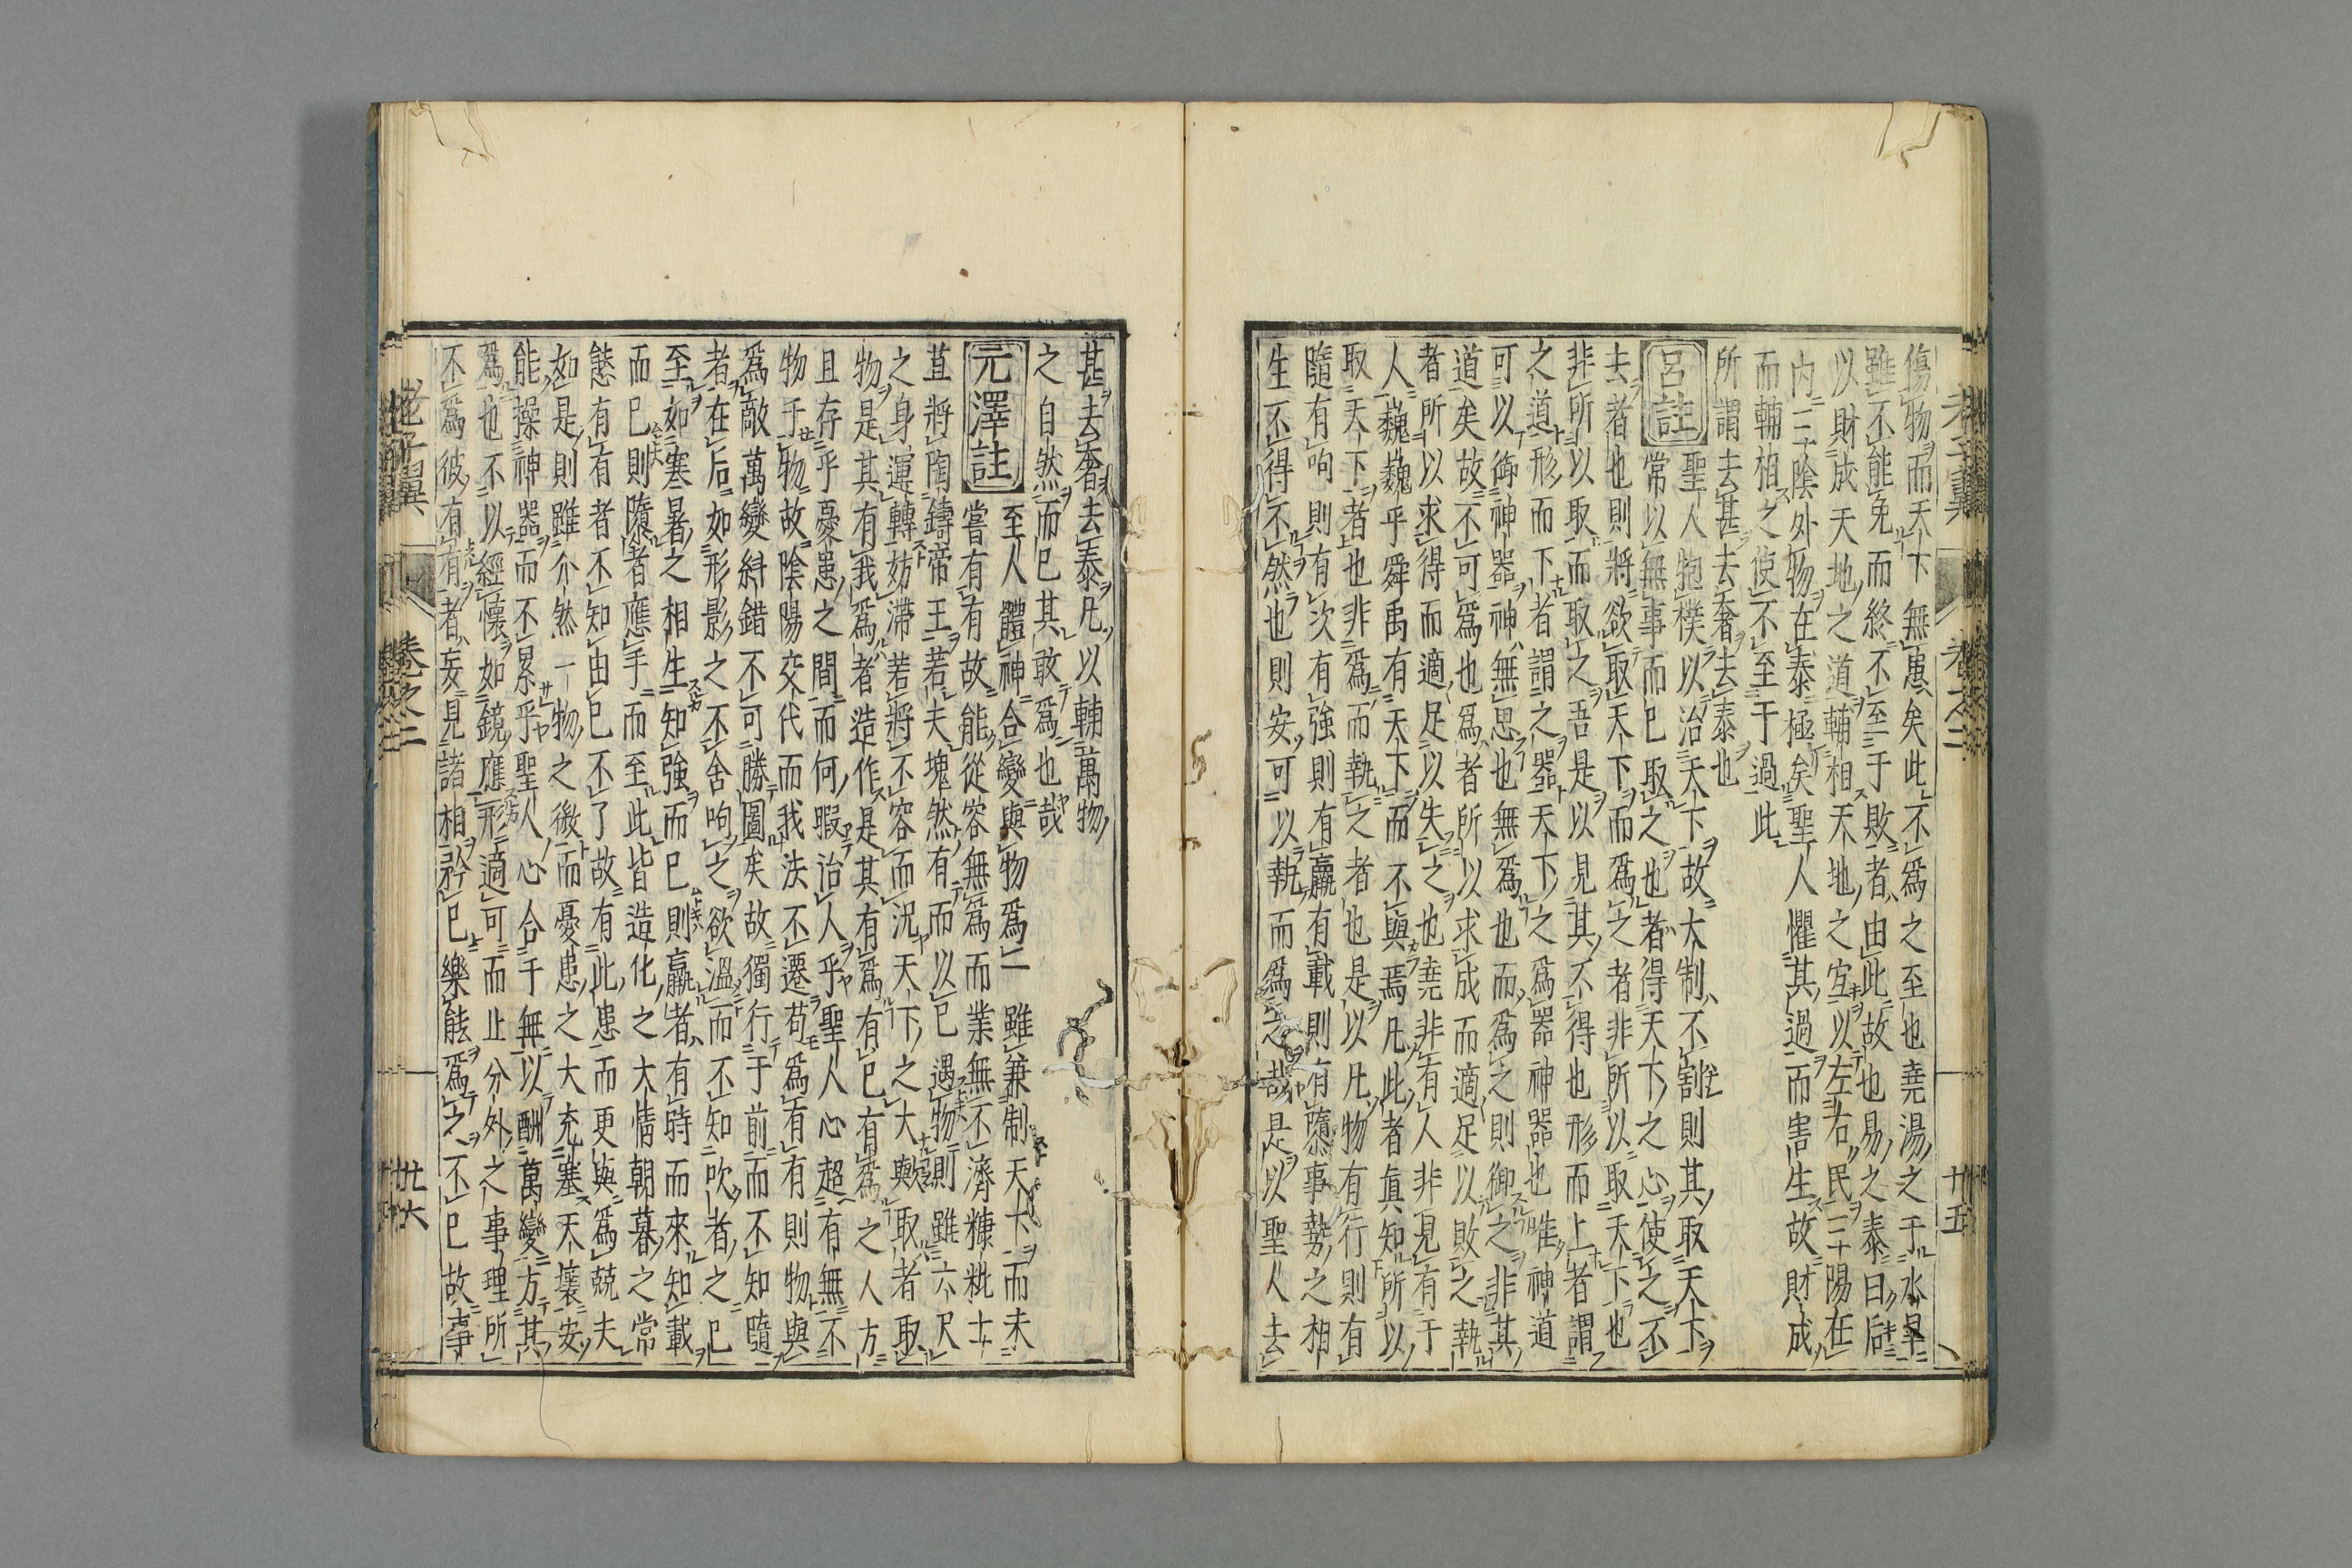 老子翼 卷之二 廿五
傷物而天下無患矣此不爲之至也堯湯之于水旱
雖不能免而終不至于敗者由此故也易之泰曰后
以財成天地之道輔相天地之宜以左右民三陽在
内三陰外物在泰極矣聖人懼其過而害生故財成
而輔相之使不至于過此
所謂去甚去奢去泰也
呂註 聖人抱樸以治天下故大制不割則其取天下
常以無事而已取之也者得天下之心使之不
去者也則將欲取天下而爲之者非所以取天下也
非所以取而取之吾是以見其不得也形而上者謂
之道形而下者謂之器天下之爲器神器也唯神道
可以御神器神無思也無爲也而爲之則御之非其
道矣故不可爲也爲者所以求成而適足以敗之執
者所以求得而適足以失之也堯非有人非見有于
人巍巍乎舜禹有天下而不與焉凡此者眞知所以
取天下者也非爲而執之者也是以凡物有行則有
隨有呴則有次有強則有羸有載則有隳事勢之相
生不得不然也則安可以執而爲之哉是以聖人去
甚去奢去泰凡以輔萬物
之自然而已其敢爲也哉
元澤註 至人體神合變與物爲一雖兼制天下而未
嘗有有故能從容無爲而業無不濟糠粃土
苴將陶鑄帝王若夫塊然有而以已遇物則雖六尺
之身運轉妨滯若將不容而況天下之大歟取者取
物是其有我爲者造作是其有爲有已有爲之人方
且存乎憂患之間而何暇治人乎聖人心超有無不
物于物故陰陽交代而我法不遷苟爲有有則物與
爲敵萬變糾錯不可勝圖矣故獨行于前而不知隨
者在后如形影之不舍呴之欲溫而不知吹者之已
至如寒暑之相生知強而已則羸者有時而來知載
而已則隳者應手而至此皆造化之大情朝暮之常
態有有者不知由已不了故有此患而更與爲兢夫
如是則雖介然一物之微而憂患之大充塞天壤安
能操神器而不累乎聖人心合于無以酬萬變方其
爲也不以經懷如鏡應形適可而止分外之事理所
不爲彼有有者妄見諸相矜已樂能爲之不已故事
老子翼 卷之二 廿六